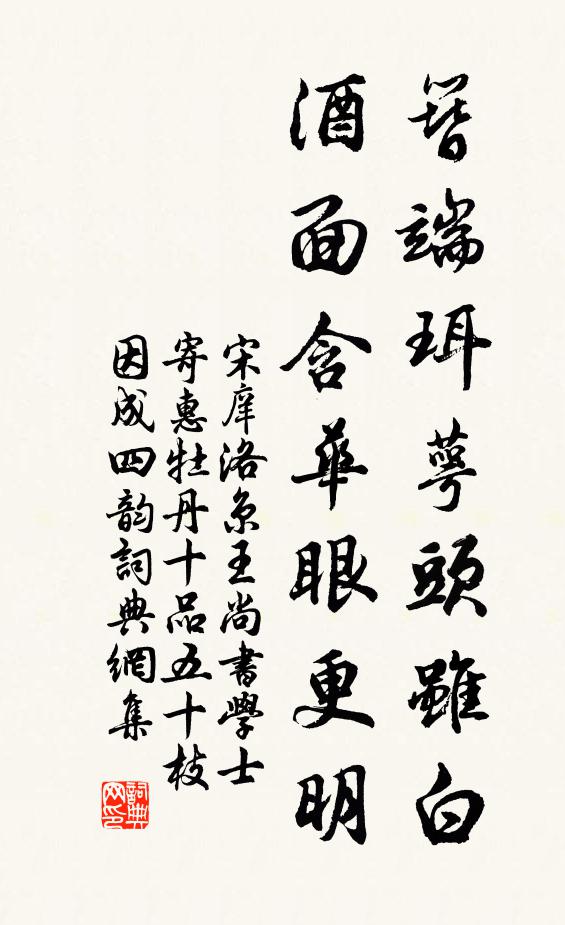 簪端珥萼頭雖白
酒面含華眼更明
宋庠洛京王尚書學士
寄惠牡丹十品五十枝
因成四韵詞典網集
詞典网印